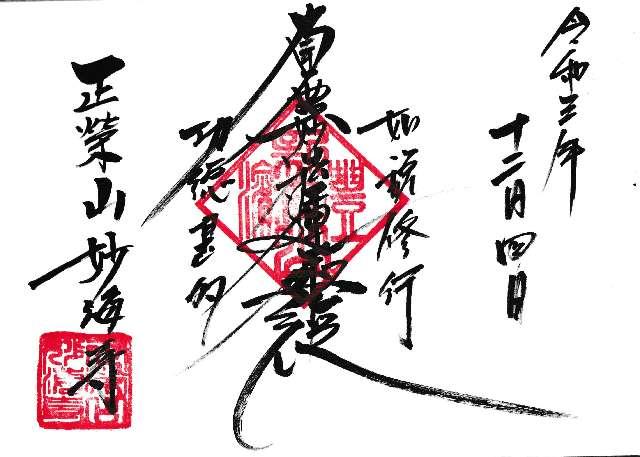 令和三年
十二月四日
如説修行
南無妙法蓮華経
功徳甚多
正榮山妙海寺